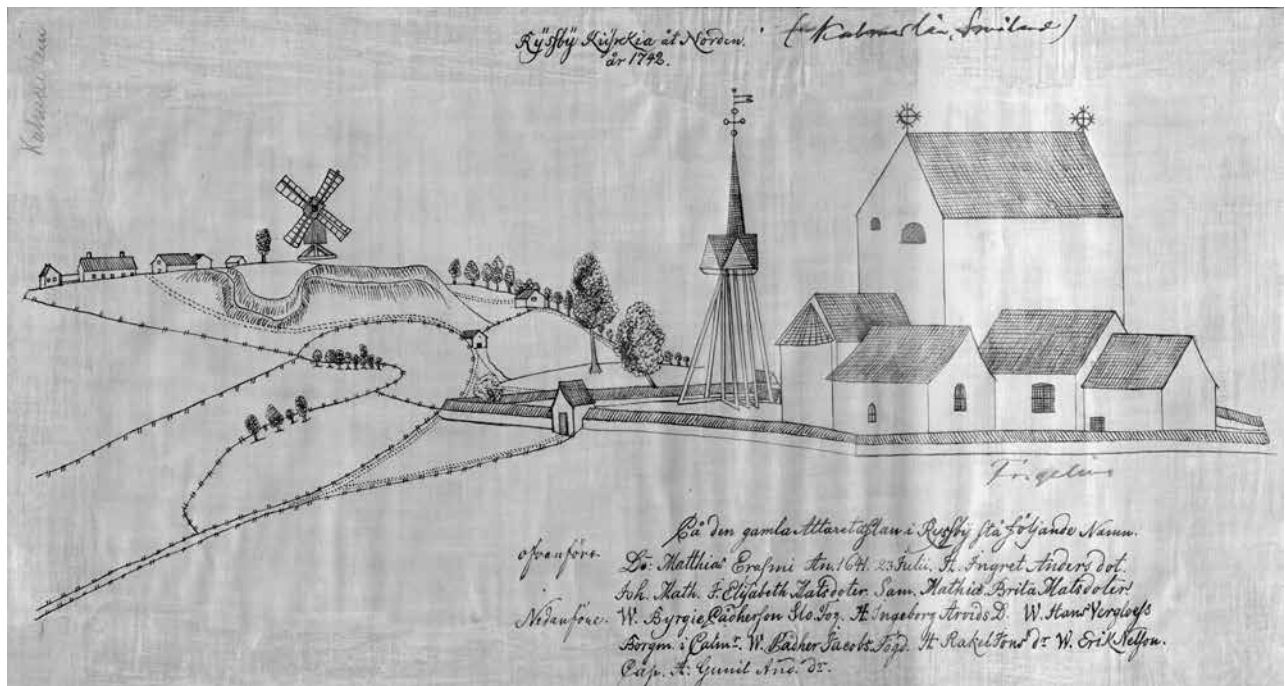 Kalmar län
Rÿssbÿ Kÿrkia åt Norden.
år 1742.
(Kalmar län, Småland)
På den gamla Altaretaflan i Ryssby stå följande Namn.
ofvanföre. Ds. Matthias Erasmi An. 1641. 23 Julii. H. Ingret Anders dot.
Joh. Math. F. Elisabeth Matsdoter. Sam. Mathiæ Brita Matsdoter
Nedanföre. W. Byrgie Pädherson Slo. Fog. H. Ingeborg Arvids D. W. Hans
Borgm. i Calmr. W. Pädher Jacobs. Fogd. H. Rakel Jons dr W. Erik Nelson.
Cap. H. Gunil And. dr.